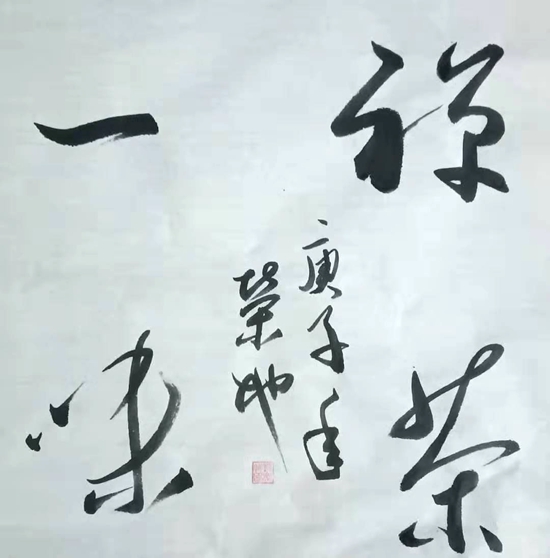 禅茶
一味
庚子年
荣